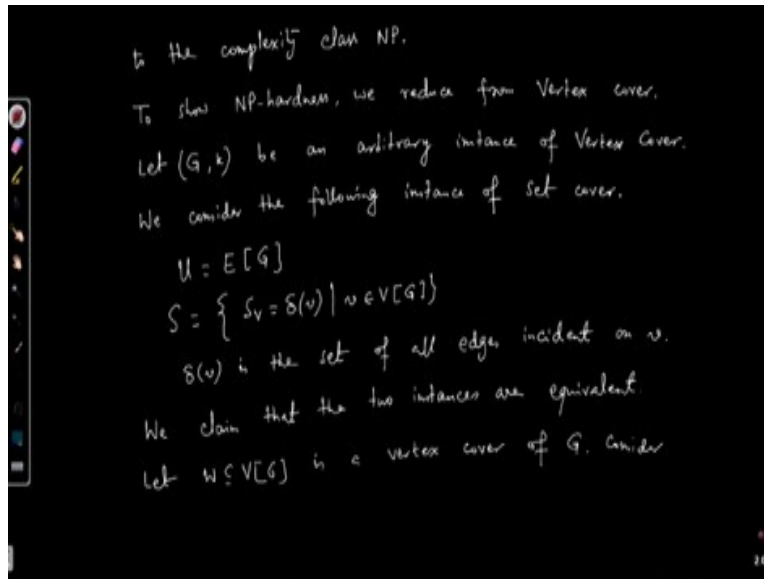 to the complexity class NP.
To show NP-hardness, we reduce from Vertex cover.
Let (G, k) be an arbitrary instance of Vertex Cover.
We consider the following instance of set cover.
U = E[G]
S = { S_v = δ(v) | v ∈ V[G] }
δ(v) is the set of all edges incident on v.
We claim that the two instances are equivalent.
Let W ⊆ V[G] is a vertex cover of G. Consider